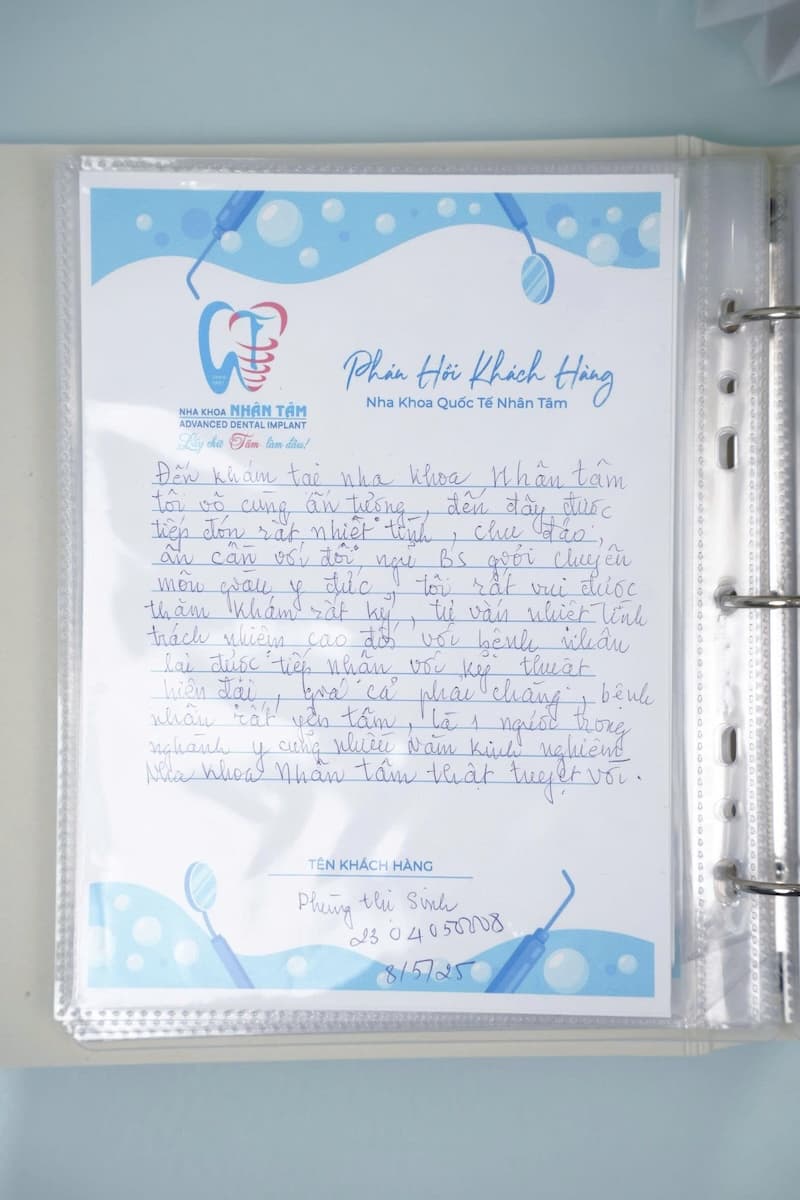 Phản Hồi Khách Hàng
Nha Khoa Quốc Tế Nhân Tâm
NHA KHOA NHÂN TÂM
ADVANCED DENTAL IMPLANT
Lấy chữ Tâm làm đầu!
Đến khám tại nha khoa Nhân tâm
tôi vô cùng ấn tượng, đến đây được
tiếp đón rất nhiệt tình, chu đáo,
ân cần với đội ngũ BS giỏi chuyên
môn giàu y đức, tôi rất vui được
thăm khám rất kỹ, tư vấn nhiệt tình
trách nhiệm cao đối với bệnh nhân
lại được tiếp nhận với kỹ thuật
hiện đại, giá cả phải chăng, bệnh
nhân rất yên tâm, là 1 người trong
nghành y cũng nhiều năm kinh nghiệm
Nha khoa Nhân tâm thật tuyệt vời.
TÊN KHÁCH HÀNG
Phùng thị Sinh
23 04050008
8/5/25